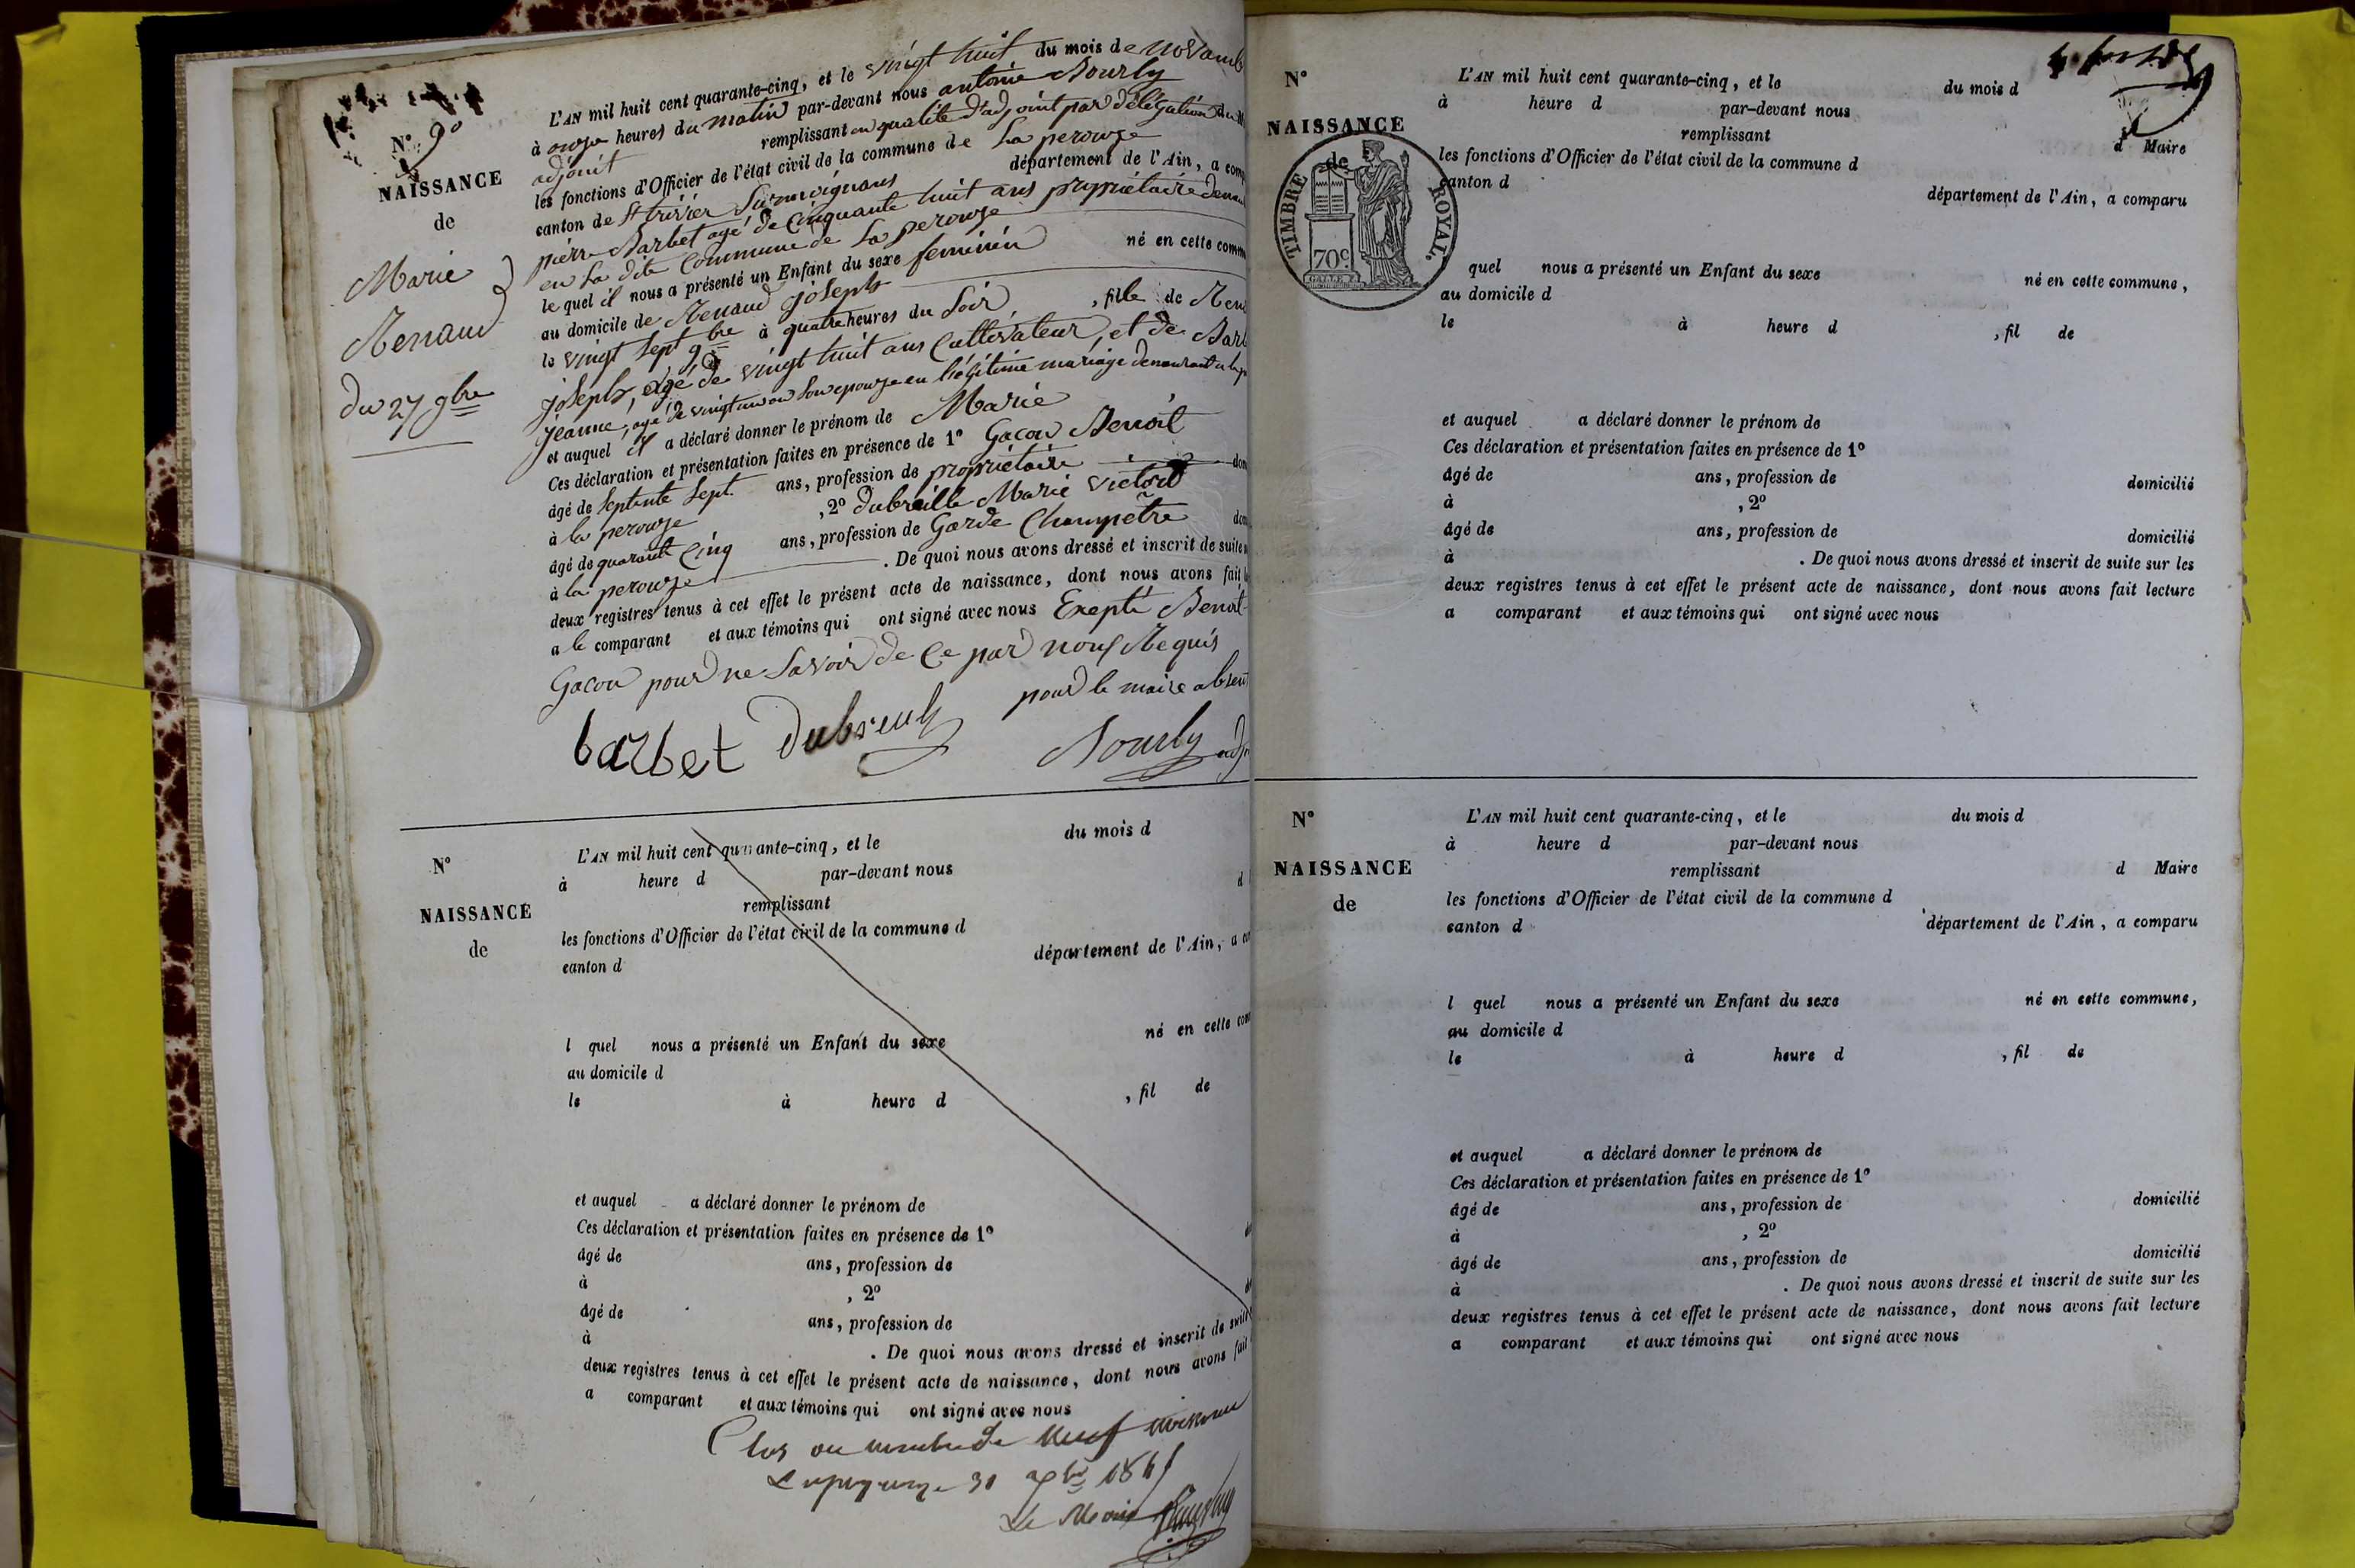 N° 9°
NAISSANCE
de
Marie
Renaud
du 27 9bre
L'AN mil huit cent quarante-cinq, et le vingt huit du mois de novamb
à onze heures du matin par-devant nous antoine Bourly
adjoint remplissant en qualité d'adjoint par délégation du M
les fonctions d'Officier de l'état civil de la commune de La perouze
canton de St trivier Surmoignans département de l'Ain, a comp
pierre Barbet agé de Cinquante huit ans propriétaire demeu
en La dite Commune de La perouze
le quel il nous a présenté un Enfant du sexe feminin né en cette comm
au domicile de Renaud joseph
le vingt Sept 9bre à quatre heures du Soir , fille de Rena
joseph, agé de vingt huit ans Cultivateur, et de Barb
jeanne, agé de vingt un an Son epouze en légitime mariage demeurant a la p
et auquel il a déclaré donner le prénom de Marie
Ces déclaration et présentation faites en présence de 1° Gacon Benoit
âgé de Septente Sept ans, profession de propriétaire dom
à la perouze , 2° Dubreille Marie victor
âgé de quarante Cinq ans, profession de Garde Champetre dom
à la perouze . De quoi nous avons dressé et inscrit de suite
deux registres tenus à cet effet le présent acte de naissance, dont nous avons fait l
a le comparant et aux témoins qui ont signé avec nous Exepté Benoit
Gacon pour ne Savoir de Ce par nous Requis
pour le maire absent
barbet Dubreuil Bourly adj
N°
NAISSANCE
de
L'AN mil huit cent quarante-cinq, et le du mois d
à heure d par-devant nous
remplissant d
les fonctions d'Officier de l'état civil de la commune d
canton d département de l'Ain, a co
l quel nous a présenté un Enfant du sexe né en cette com
au domicile d
le à heure d , fil de
et auquel a déclaré donner le prénom de
Ces déclaration et présentation faites en présence de 1°
âgé de ans, profession de
à , 2°
âgé de ans, profession de
à . De quoi nous avons dressé et inscrit de suite
deux registres tenus à cet effet le présent acte de naissance, dont nous avons fait
a comparant et aux témoins qui ont signé avec nous
Clos au nombre de Neuf
Lapeyrouze 31 1845
Le Maire
N°
NAISSANCE
de
TIMBRE ROYAL.
70c.
L'AN mil huit cent quarante-cinq, et le du mois d
à heure d par-devant nous
remplissant d Maire
les fonctions d'Officier de l'état civil de la commune d
canton d département de l'Ain, a comparu
quel nous a présenté un Enfant du sexe né en cette commune,
au domicile d
le à heure d , fil de
et auquel a déclaré donner le prénom de
Ces déclaration et présentation faites en présence de 1°
âgé de ans, profession de domicilié
à , 2°
âgé de ans, profession de domicilié
à . De quoi nous avons dressé et inscrit de suite sur les
deux registres tenus à cet effet le présent acte de naissance, dont nous avons fait lecture
a comparant et aux témoins qui ont signé avec nous
N°
NAISSANCE
de
L'AN mil huit cent quarante-cinq, et le du mois d
à heure d par-devant nous
remplissant d Maire
les fonctions d'Officier de l'état civil de la commune d
canton d département de l'Ain, a comparu
l quel nous a présenté un Enfant du sexe né en cette commune,
au domicile d
le à heure d , fil de
et auquel a déclaré donner le prénom de
Ces déclaration et présentation faites en présence de 1°
âgé de ans, profession de domicilié
à , 2°
âgé de ans, profession de domicilié
à . De quoi nous avons dressé et inscrit de suite sur les
deux registres tenus à cet effet le présent acte de naissance, dont nous avons fait lecture
a comparant et aux témoins qui ont signé avec nous